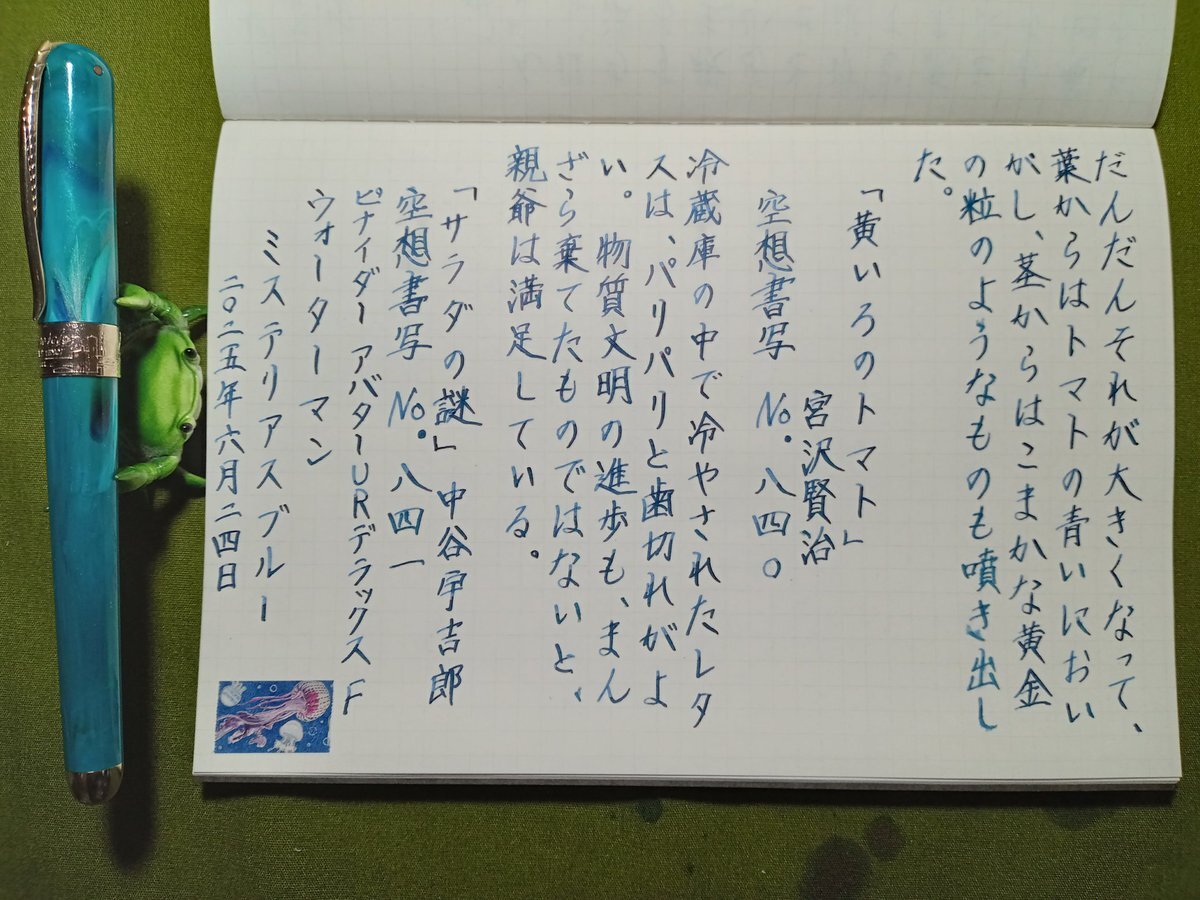 だんだんそれが大きくなって、
葉からはトマトの青いにおい
がし、茎からはこまかな黄金
の粒のようなものも噴き出し
た。
「黄いろのトマト」
宮沢賢治
空想書写 No.八四〇
冷蔵庫の中で冷やされたレタ
スは、パリパリと歯切れがよ
い。物質文明の進歩も、まん
ざら棄てたものではないと、
親爺は満足している。
「サラダの謎」中谷宇吉郎
空想書写 No.八四一
ピナイダー アバターURデラックス F
ウォーターマン
ミステリアスブルー
二〇二五年六月二四日